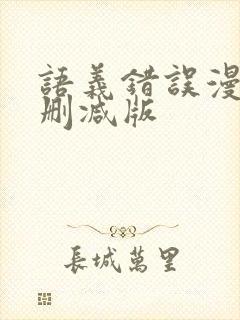 語義錯誤漫
删减版
長城萬里